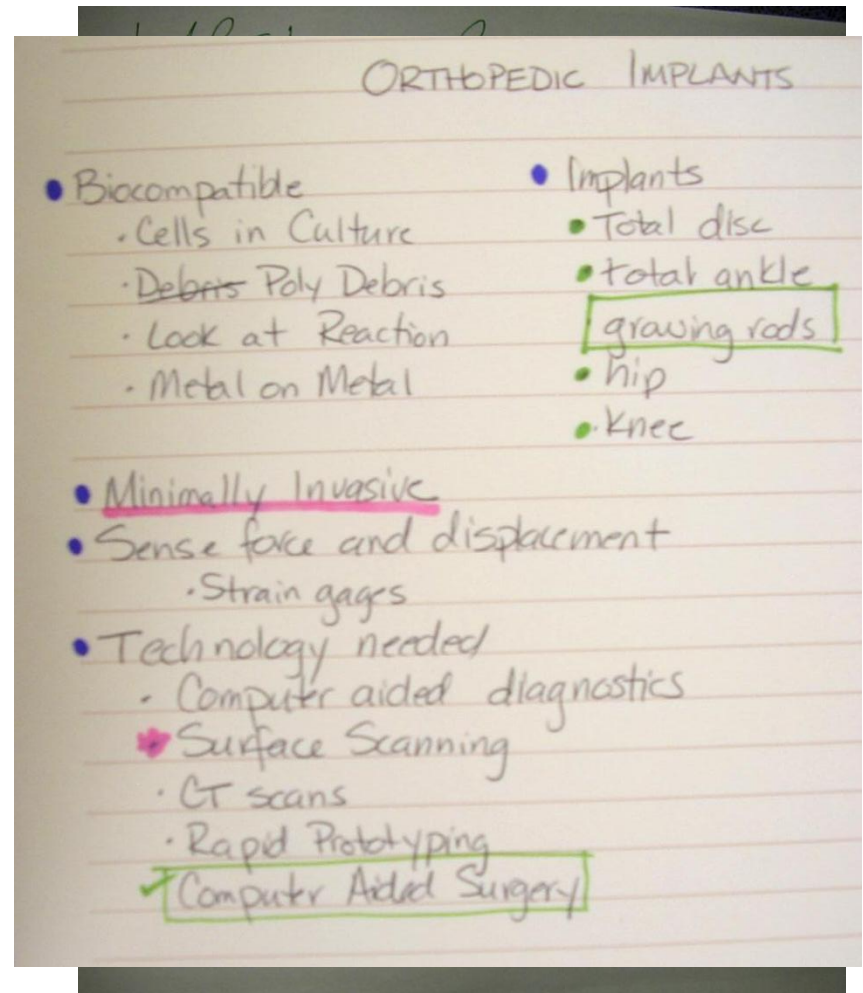 ORTHOPEDIC IMPLANTS
Biocompatible
Cells in Culture
Debris Poly Debris
Look at Reaction
Metal on Metal
Implants
Total disc
total ankle
growing rods
hip
Knee
Minimally Invasive
Sense force and displacement
Strain gages
Technology needed
Computer aided diagnostics
Surface Scanning
CT scans
Rapid Prototyping
Computer Aided Surgery